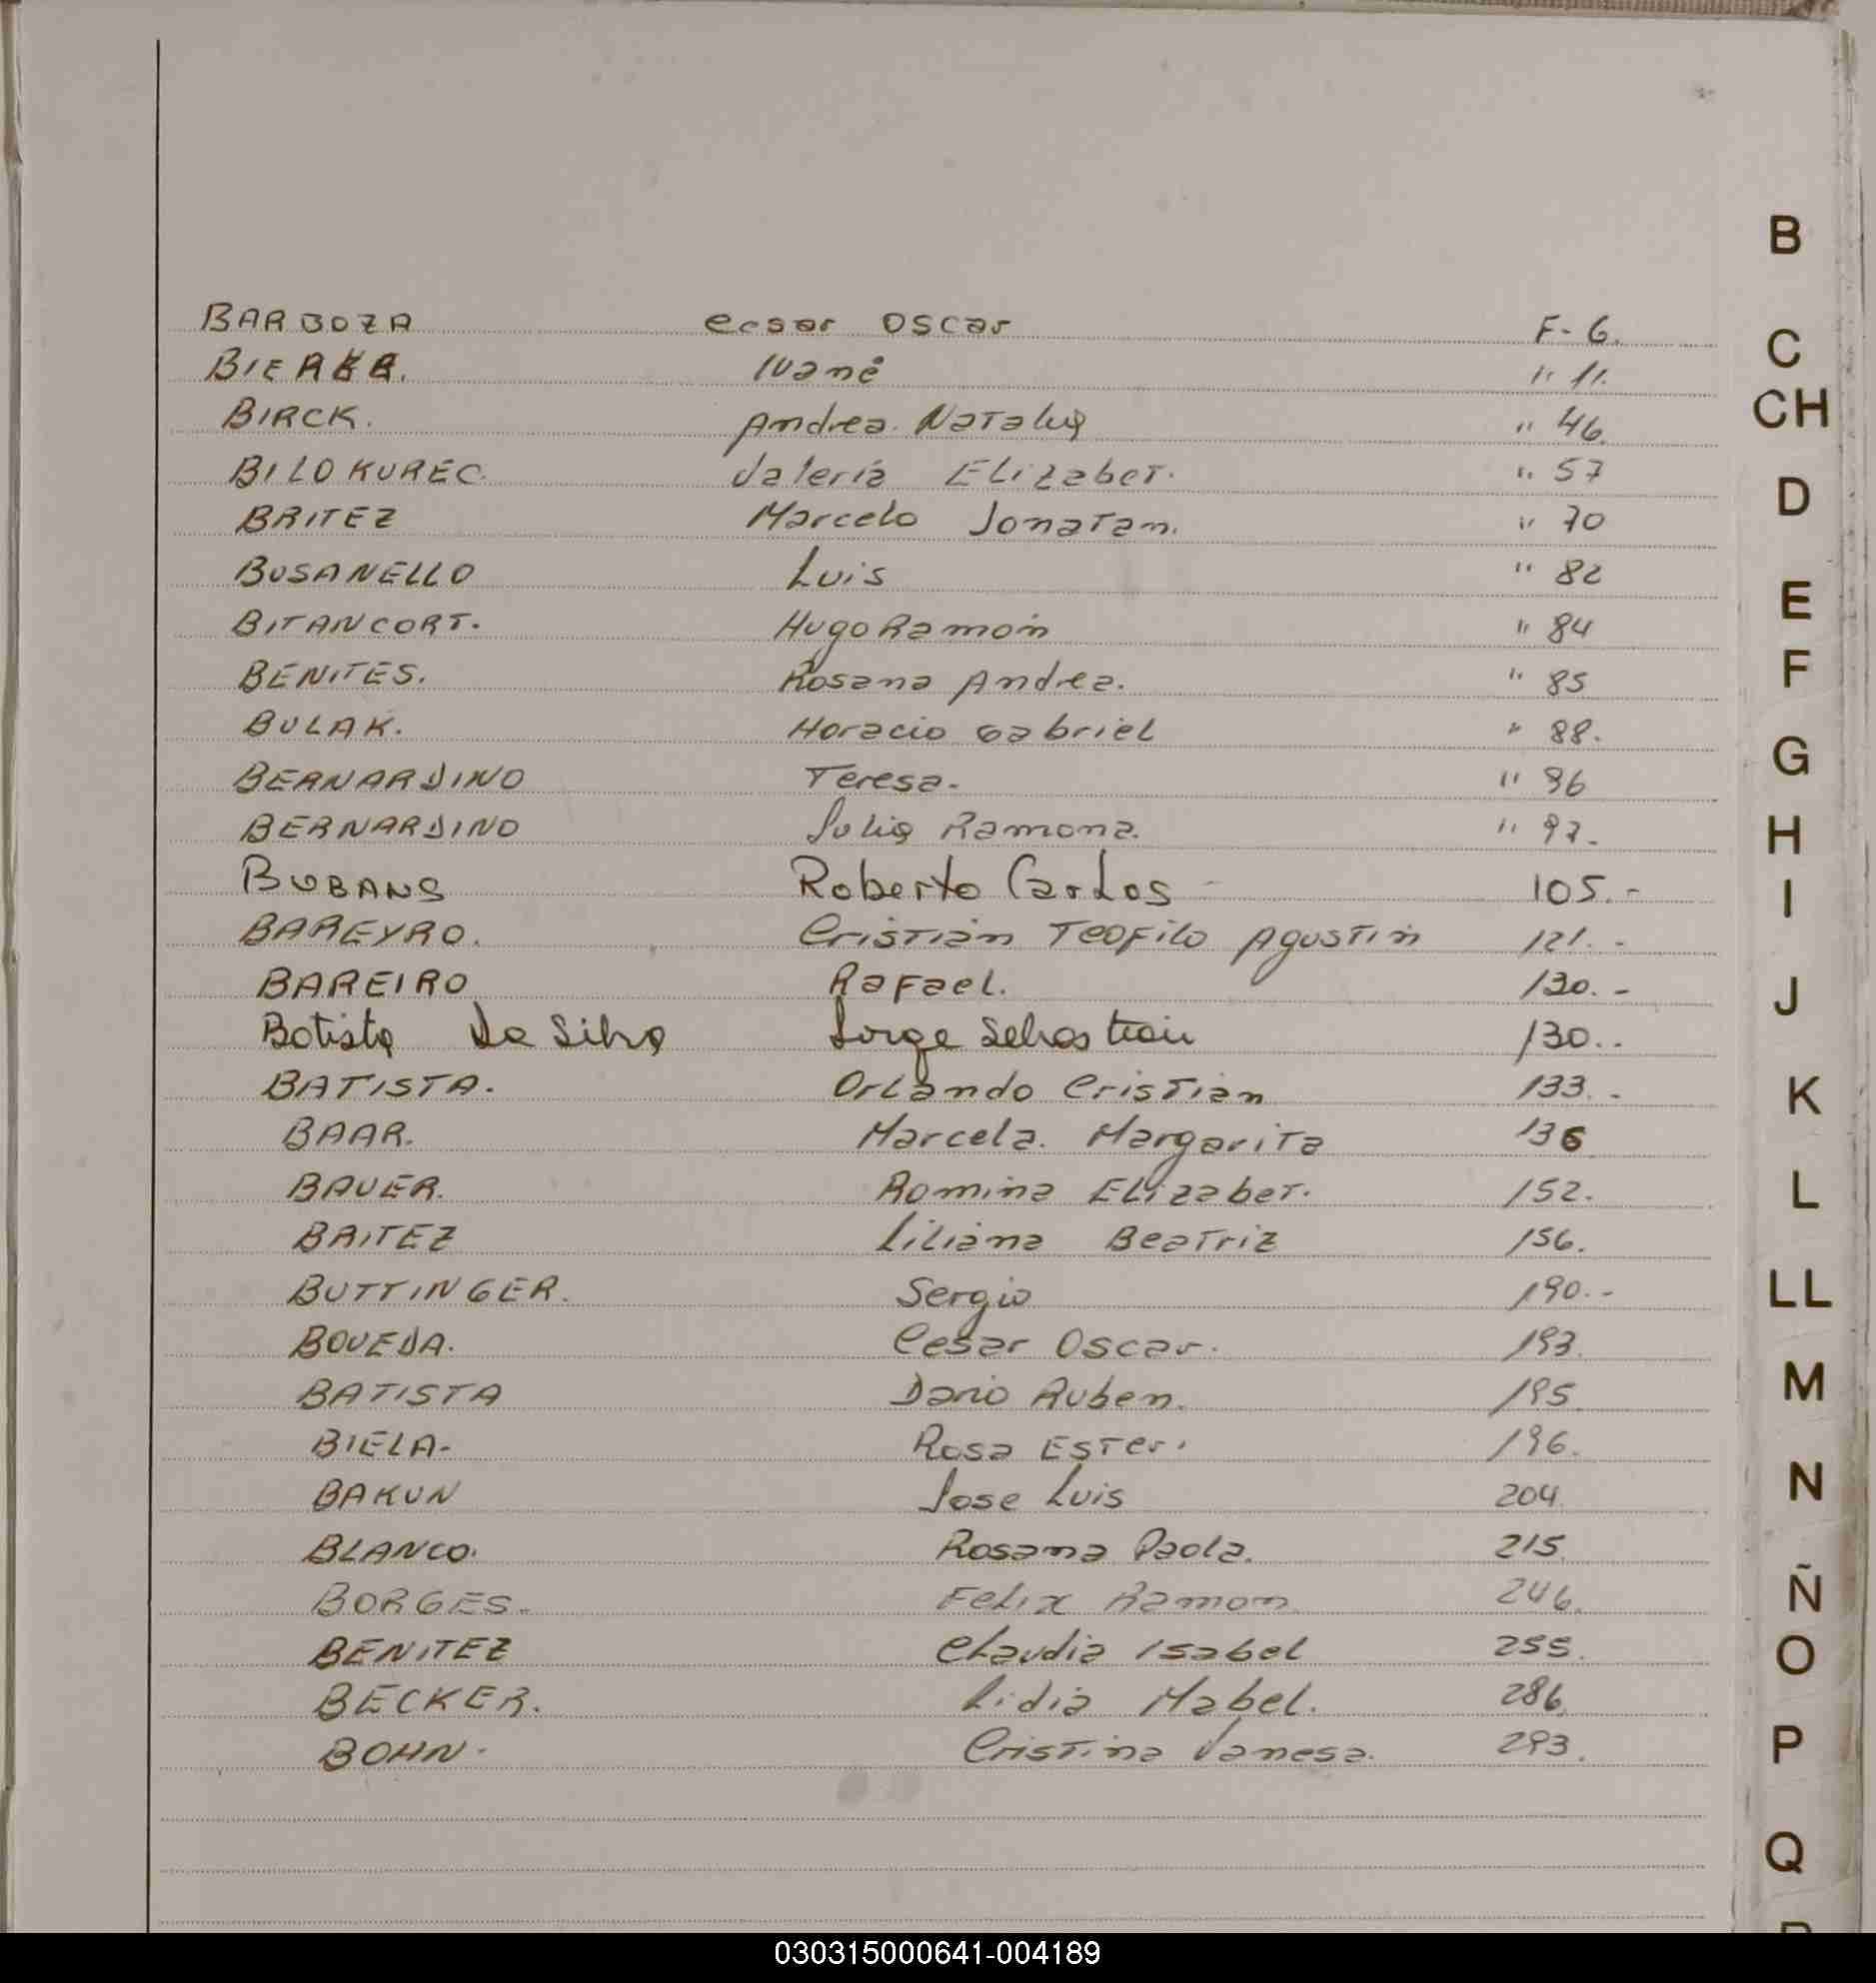 BARBOZA Cesar Oscar F- 6.
Ivane " 11.
BIRCK. Andrea Natalia " 46
BILOKUREC. Valeria Elizabet. " 57
BRITEZ Marcelo Jonatan. " 70
BUSANELLO Luis " 82
BITANCORT. Hugo Ramón " 84
BENITES. Rosana Andrea. " 85
BULAK. Horacio Gabriel " 88.
BERNARDINO Teresa. " 96
BERNARDINO Julia Ramona. " 97.
BUBANS Roberto Carlos 105.-
BAREYRO. Cristián Teofilo Agustín 121.-
BAREIRO Rafael. 130.-
Batista Da Silva Jorge Sebastian 130..
BATISTA. Orlando Cristian 133.-
BAAR. Marcela. Margarita 136
BAUER. Romina Elizabet. 152.
BRITEZ Liliana Beatriz 156.
BUTTINGER. Sergio 190.-
BOVEDA. Cesar Oscar. 193.
BATISTA Dario Ruben. 195.
BIELA- Rosa Ester. 196.
BAKUN Jose Luis 204
BLANCO. Rosana Paola. 215
BORGES. Felix Ramon 246.
BENITEZ Claudia Isabel 255.
BECKER. Lidia Mabel. 286.
BOHN. Cristina Vanesa. 293.
B
C
CH
D
E
F
G
H
I
J
K
L
LL
M
N
Ñ
O
P
Q
030315000641-004189